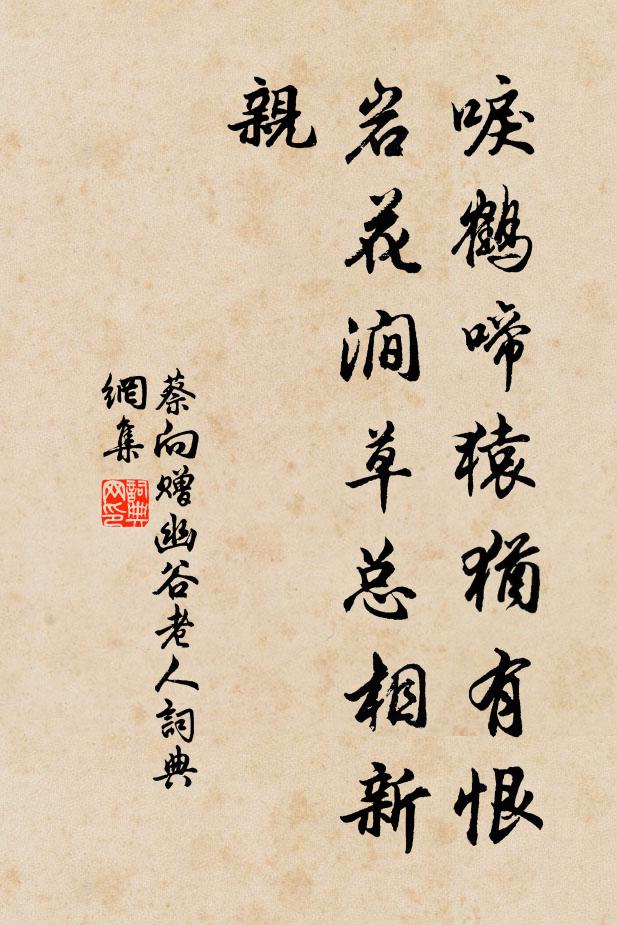 唳鶴啼猿猶有恨
岩花澗草总相新
親
蔡向贈幽谷老人詞典
網集
詞典
网印